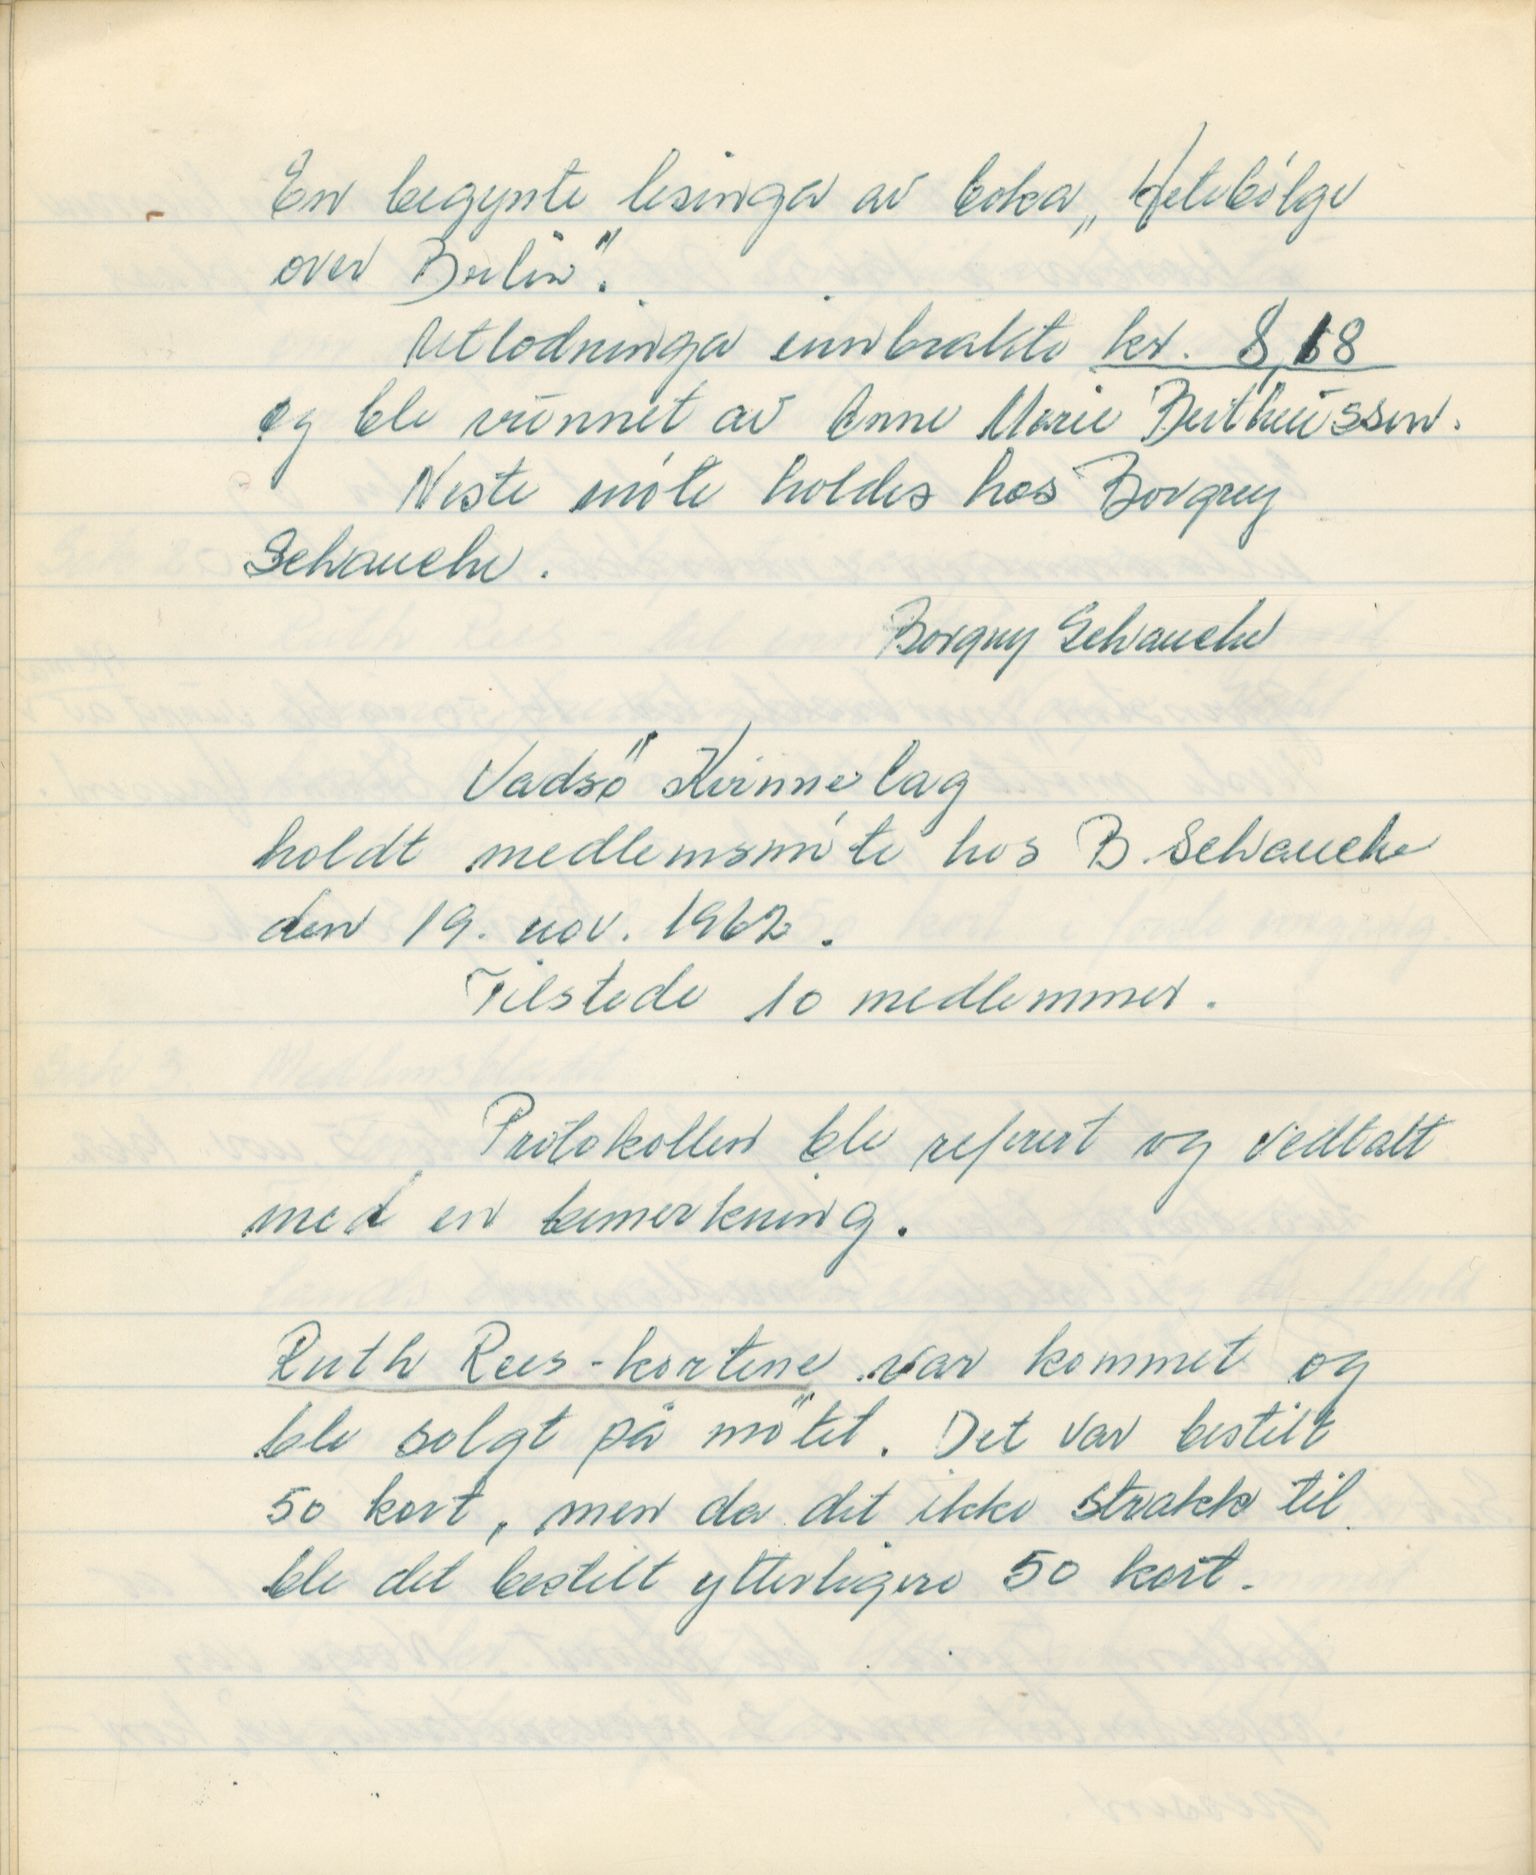 En begynte lesinga av boka „Hetebölge
over Berlin".
Utlodninga innbrakte kr. 8,68
og ble vunnet av Anne Marie Bertheussen.
Neste möte holdes hos Borgny
Schancke.
Borgny Schancke
Vadsö Kvinnelag
holdt medlemsmöte hos B. Schancke
den 19. nov. 1962.
Tilstede 10 medlemmer.
Protokollen ble referert og vedtatt
med en bemerkning.
Ruth Rees-kortene var kommet og
ble solgt på mötet. Det var bestilt
50 kort, men da det ikke strakk til
ble det bestilt ytterligere 50 kort.